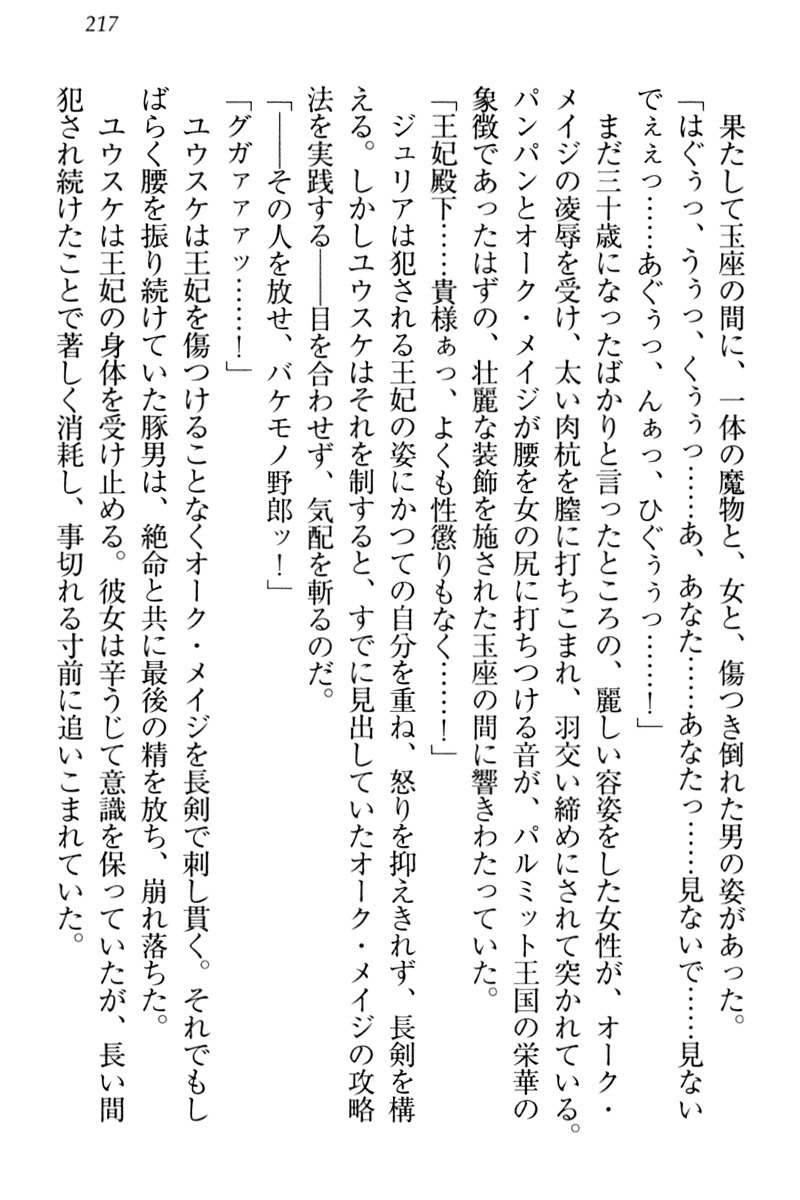 217
果たして玉座の間に、一体の魔物と、女と、傷つき倒れた男の姿があった。
「はぐぅっ、うぅっ、くぅぅっ……あ、あなた……あなたっ……見ないで……見ない
でぇぇっ……あぐぅっ、んぁっ、ひぐぅぅっ……！」
まだ三十歳になったばかりと言ったところの、麗しい容姿をした女性が、オーク・
メイジの凌辱を受け、太い肉杭を膣に打ちこまれ、羽交い締めにされて突かれている。
パンパンとオーク・メイジが腰を女の尻に打ちつける音が、パルミット王国の栄華の
象徴であったはずの、壮麗な装飾を施された玉座の間に響きわたっていた。
「王妃殿下……貴様ぁっ、よくも性懲りもなく……！」
ジュリアは犯される王妃の姿にかつての自分を重ね、怒りを抑えきれず、長剣を構
える。しかしユウスケはそれを制すると、すでに見出していたオーク・メイジの攻略
法を実践する――目を合わせず、気配を斬るのだ。
「――その人を放せ、バケモノ野郎ッ！」
「グガァァァッ……！」
ユウスケは王妃を傷つけることなくオーク・メイジを長剣で刺し貫く。それでもし
ばらく腰を振り続けていた豚男は、絶命と共に最後の精を放ち、崩れ落ちた。
ユウスケは王妃の身体を受け止める。彼女は辛うじて意識を保っていたが、長い間
犯され続けたことで著しく消耗し、事切れる寸前に追いこまれていた。